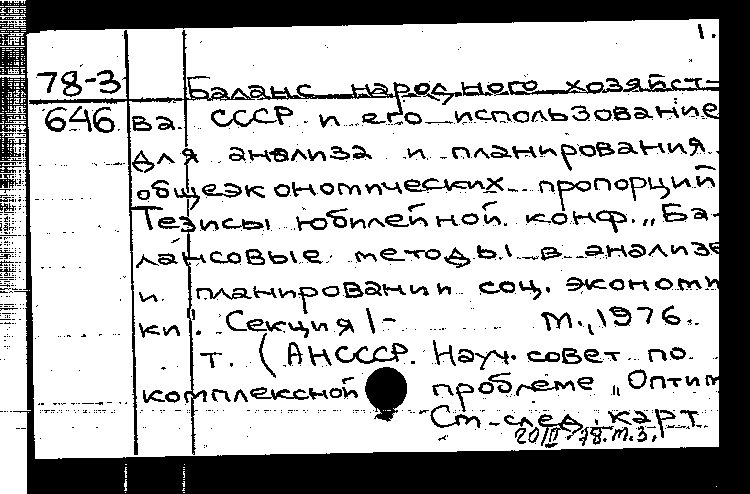 1.
78-3 Баланс народного хозяйст-
646 ва СССР и его использование
для анализа и планирования
общеэкономических пропорций
Тезисы юбилейной конф. „Ба-
лансовые методы в анализе
и планировании соц. экономи
ки". Секция 1-  М., 1976.
т. (АНСССР. Науч. совет по
комплексной проблеме „Оптим
См-след. карт
20/II-78. м.з.